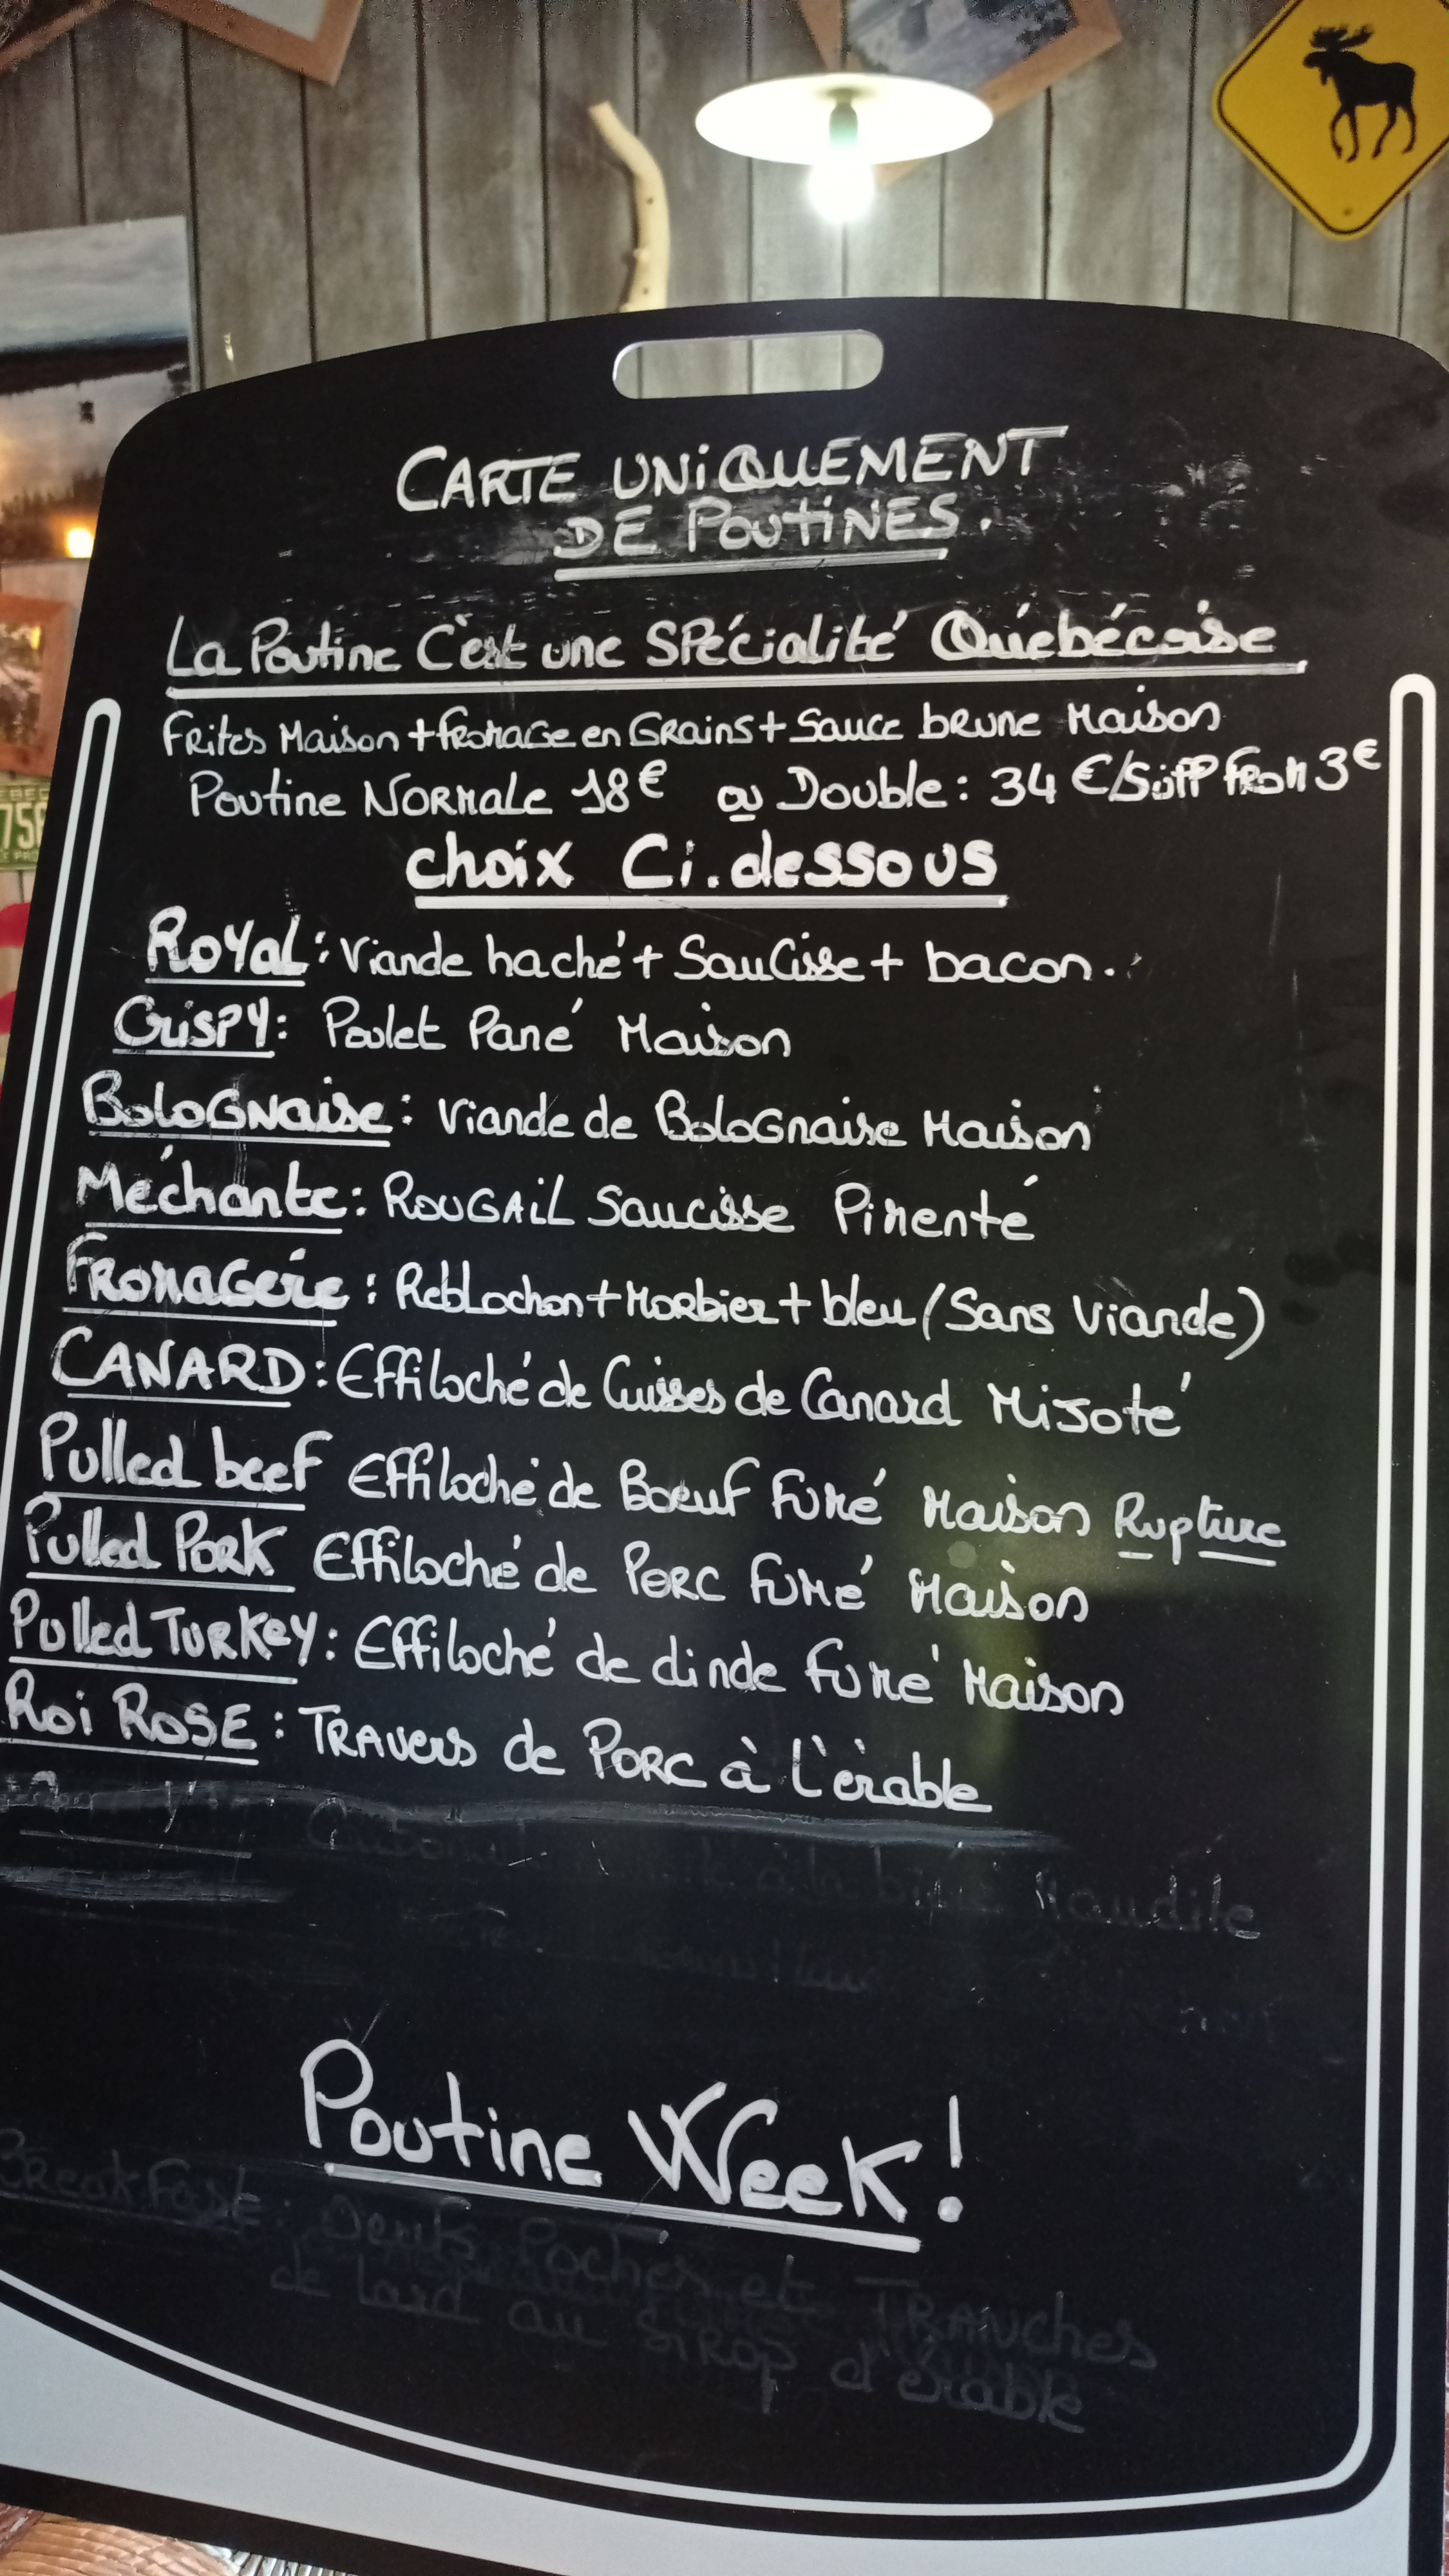 CARTE UNIQUEMENT
DE POUTINES.
La Poutine C'est une SPécialité Québécoise
Frites Maison + fromage en Grains + Sauce brune Maison
Poutine Normale 18€ ou Double: 34 €/Supp From 3€
choix Ci.dessous
Royal: Viande haché + Saucisse + bacon.
CrisPY: Poulet Pané Maison
BoloGNaise: Viande de BoloGnaise Maison
Méchante: ROUGAIL Saucisse Pimenté
FROMAGère: RebLochon + Morbier + bleu (Sans Viande)
CANARD: Effiloché de Cuisses de Canard MiJoté
Pulled beef Effiloché de Boeuf Fumé Maison Rupture
Pulled PORK Effiloché de PORC FUMé Maison
Pulled TURKEY: Effiloché de dinde fumé Maison
Roi ROSE: TRAVERS de PORC à L'érable
à la Maudite
Poutine Week!
BreakFast: Oeufs Pochés et TRANches
de lard au SIROP d'érable
756